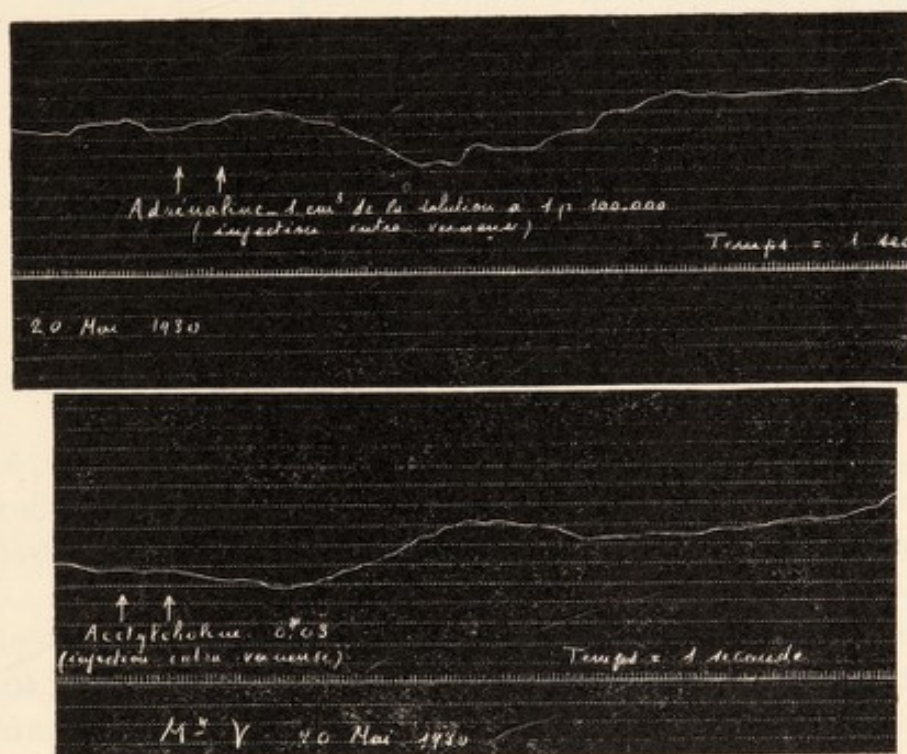 Adrénaline - 1 cm³ de la solution a 1 p 100.000
(injection intra veineuse)
Temps = 1 sec
20 Mai 1930
Acetylcholine 0.03
(injection intra veineuse)
Temps = 1 seconde
V 20 Mai 1930